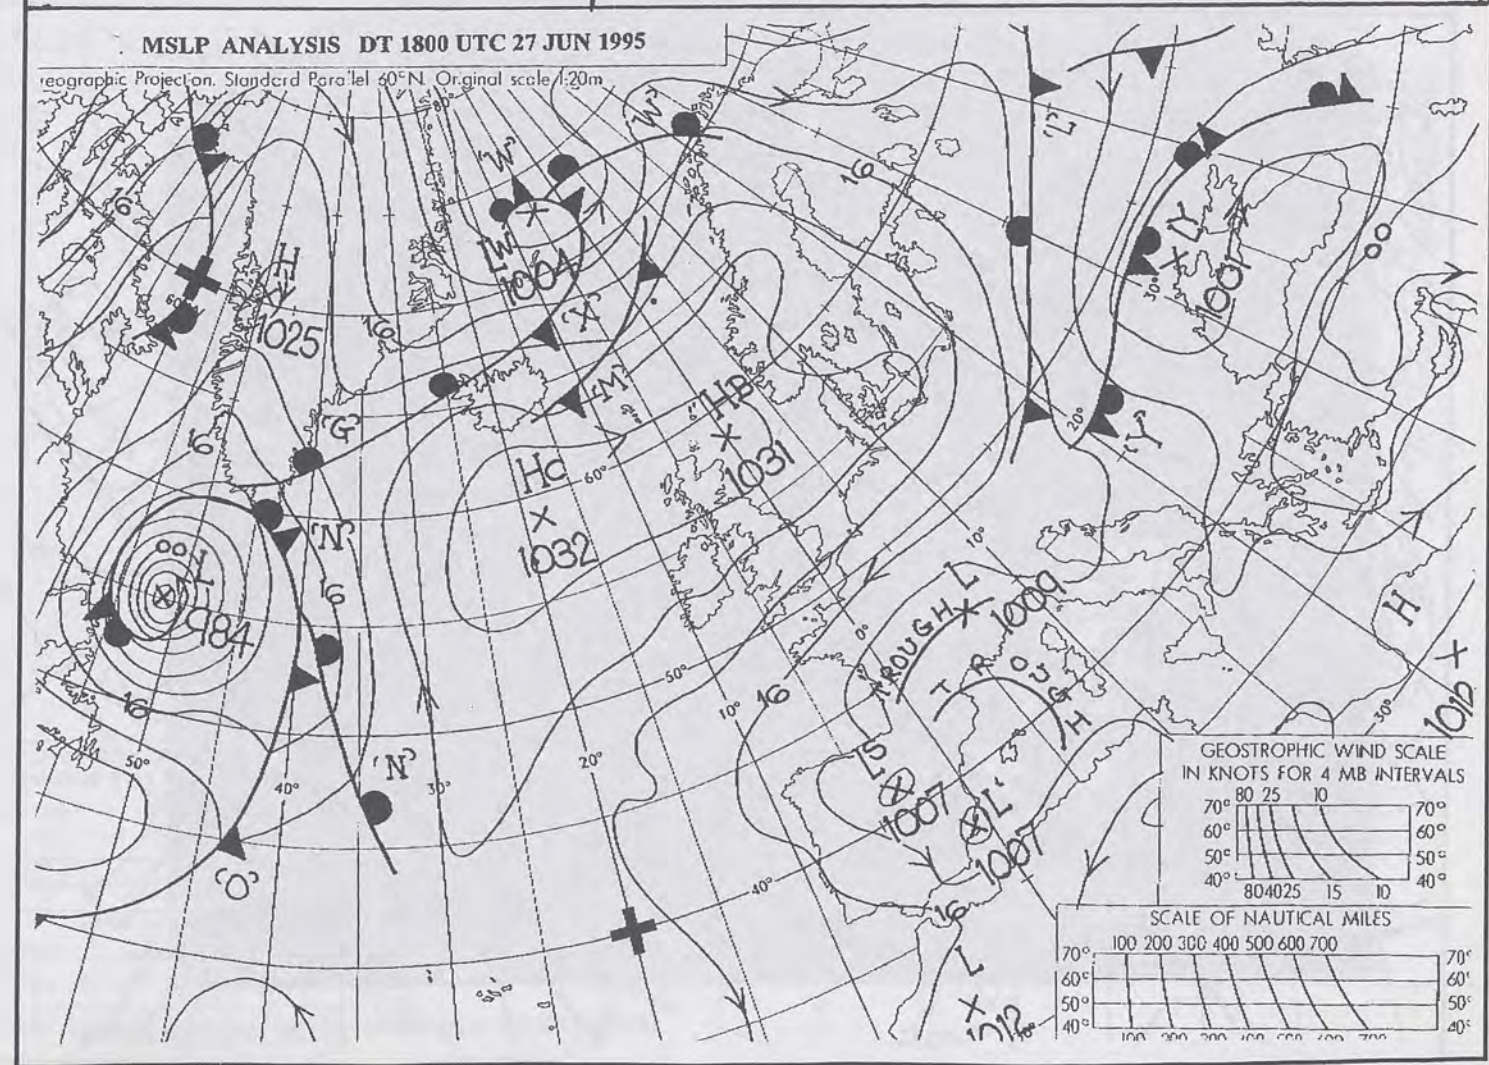 MSLP ANALYSIS DT 1800 UTC 27 JUN 1995
reographic Projection. Standard Parallel 60°N. Original scale 1:20m
80°
'W'
'W'
'L'
16
16
H
1025
60°
LW
1004
16
'X'
'M'
LY
1001
00
30°
20°
'Y'
'G'
16
HB
1031
Hc
1032
60°
'N'
16
00
L
984
16
10°
TROUGH L
1009
TROUGH
0°
50°
10°
16
H
1012
30°
50°
40°
'N'
30°
20°
LS
1007
L'
1007
40°
'O'
16
L
1012
GEOSTROPHIC WIND SCALE
IN KNOTS FOR 4 MB INTERVALS
80 25 10
70° 70°
60° 60°
50° 50°
40° 40°
80 40 25 15 10
SCALE OF NAUTICAL MILES
100 200 300 400 500 600 700
70° 70°
60° 60°
50° 50°
40° 40°
100 200 300 400 500 600 700